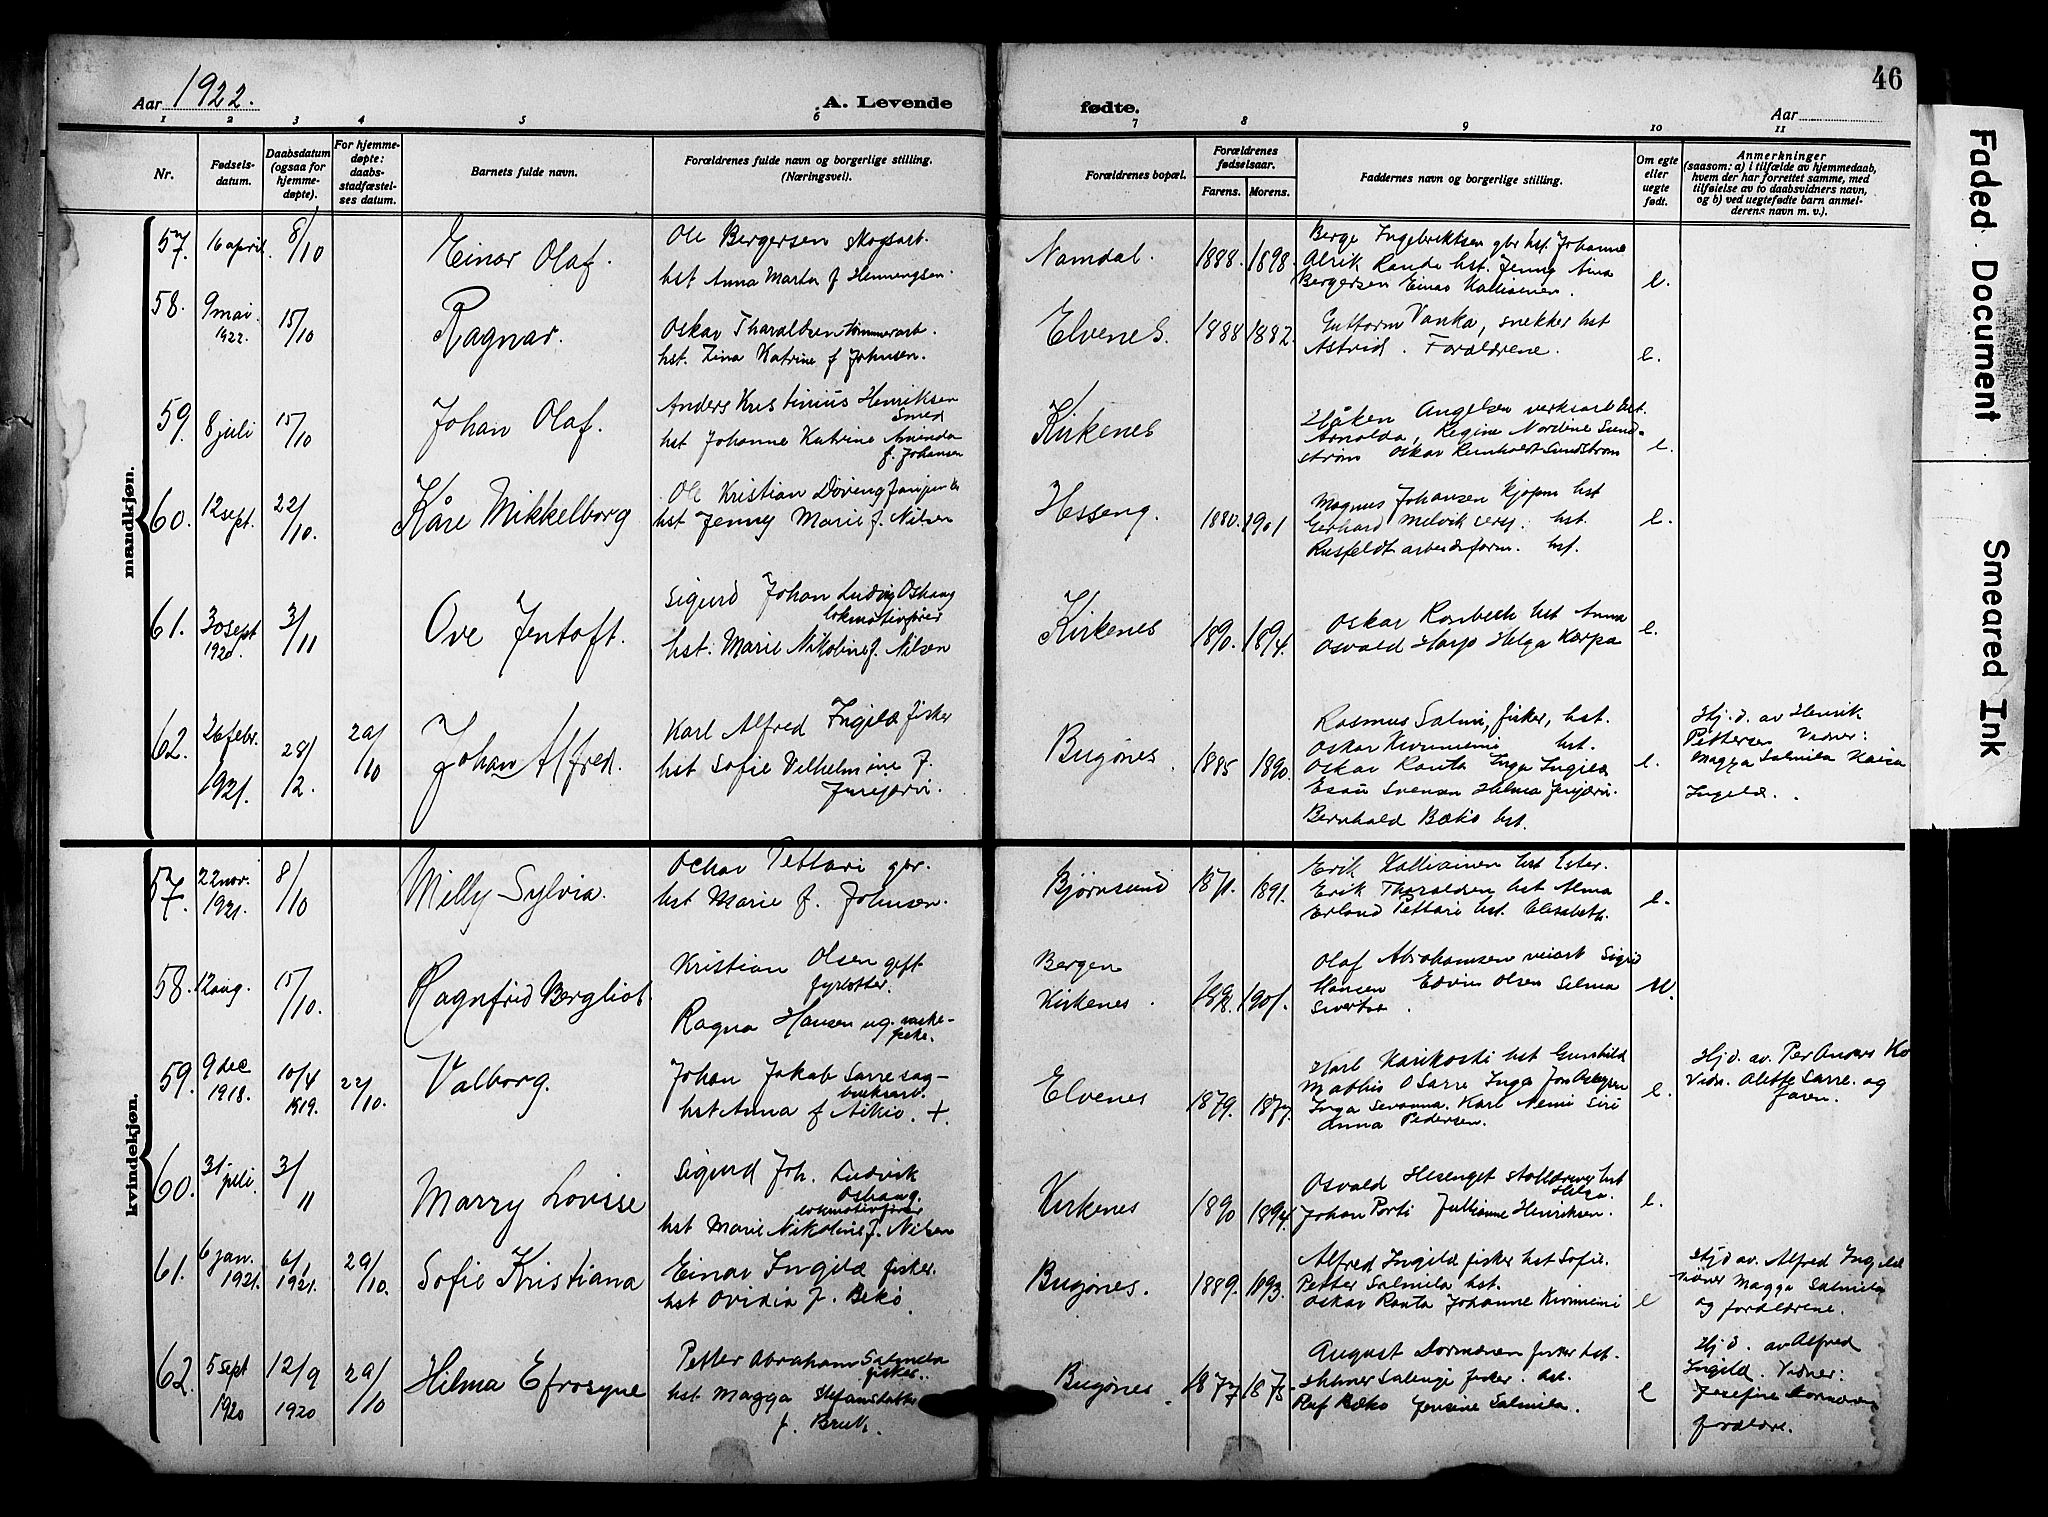 Aar 1922.
A. Levende
fødte.
Aar
46
1 2 3 4 5 6 7 8 9 10 11
Nr.
Fødsels-
datum.
Daabsdatum
(ogsaa for
hjemme-
døpte).
For hjemme-
døpte:
daabs-
stadfæstel-
ses datum.
Barnets fulde navn.
Forældrenes fulde navn og borgerlige stilling.
(Næringsvei).
Forældrenes bopæl.
Forældrenes
fødselsaar.
Farens. Morens.
Faddernes navn og borgerlige stilling.
Om egte
eller
uegte
født.
Anmerkninger
(saasom: a) i tilfælde av hjemmedaab,
hvem der har forrettet samme, med
tilføielse av to daabsvidners navn,
og b) ved uegtefødte barn anmel-
derens navn m. v.).
mandkjøn.
57. 16 april. 8/10 Einar Olaf.
Ole Bergersen Skogsarb.
hst Anna Marta f Henningsen.
Namdal. 1888. 1898.
Berge Ingebriktsen gbr hst. Johanne
Alrik Rande hst. Jenny Aina
Bergersen Einar Kalliainen.
e.
58. 9 mai. 1922. 15/10 Ragnar.
Oskar Tharaldsen tømmerarb.
hst. Lina Katrine f Johnsen.
Elvenes. 1888 1882.
Guttorm Vanka, snekker hst
Astrid. Forældrene.
e.
59. 8 juli 15/10 Johan Olaf.
Anders Kristinius Henriksen
Smed
hst Johanne Katrine Amanda
f. Johansen
Kirkenes
Håken Angelsen verksarb hst.
Arnolda, Regine Nordine Sund-
strøm Oskar Reinholdt Sundstrøm
e.
60. 12 sept. 22/10. Kåre Mikkelborg
Ole Kristian Døveng
hst Jenny Marie f. Nilsen
Hesseng. 1880. 1901
Magnus Johansen kjøpm hst
Gerhard Melvik hst.
Rusfeldt arbeidsform. hst.
e.
61. 30 sept 1920. 3/11 Ove Jentoft.
Sigurd Johan Ludvig Oshaug
lokomotivfører
hst. Marie Nikoline f. Nilsen
Kirkenes 1890. 1894.
Oskar Ronbeck hst Anna
Osvald Harp Helga Karpa
e.
62. 26 febr. 1921. 28/12. 29/10 Johan Alfred.
Karl Alfred Ingilæ fisker
hst Sofie Vilhelmine f.
Junjærvi.
Bugønes. 1885 1890.
Rasmus Salmi, fisker, hst.
Oskar Kivinieimi hst.
Oskar Ranta Inga Ingilæ
Esau Svensen Hilma Junjærvi.
Bernhald Bækø hst.
e.
Hj. d. av Henrik
Pettersen Vidner:
Magga Salmila Kaisa
Ingilæ.
kvindekjøn.
57. 22 nov. 1921. 8/10 Milly Sylvia.
Oskar Pettari gbr.
hst Marie f. Johnsen.
Bjørnsund 1871. 1891.
Erik Kalliainen hst Ester.
Erik Tharaldsen hst Alma
Erland Pettari hst. Elisabeth.
e.
58. 12 aug. 15/10. Ragnfrid Bergliot.
Kristian Olsen gift
fyrbøter.
Ragna Hansen ug. vaske-
pike.
Bergen
Kirkenes.
1892. 1901.
Olaf Abrahamsen veiarb Sigrid
Hansen Edvin Olsen Selma
Sivertsen.
U.
59. 9 dec 1918. 10/4 1919. 22/10. Valborg.
Johan Jakab Sarre sag-
bruksarb.
hst Anna f Aikio. +
Elvenes 1879. 1877.
Karl Karikoski hst Gunhild
Mathis O Sarre Inga
Inga Sevanna. Karl Niemi Siri
Anna Pedersen.
e.
Hj d. av. Per Anders
Vidn. Alette Sarre. og
faren.
60. 31 juli. 3/11 Marry Lovisse
Sigurd Joh. Ludvik
Oshaug.
lokomotivfører
hst Marie Nikoline f. Nilsen
Kirkenes 1890 1894.
Osvald Hesenget hst
Helga.
Johan Porti Jullianne Henriksen.
e.
61. 6 jan. 1921. 6/1 1921. 29/10. Sofie Kristiana
Einar Ingilæ fisker.
hst Ovidia f. Bekø.
Bugønes. 1889. 1893.
Alfred Ingilæ fisker hst Sofie.
Petter Salmila hst.
Oskar Ranta Johanne Kivinieimi
e
Hj d av. Alfred Ingilæ
vidner Magga Salmila
og forældrene.
62. 5 sept 1920 12/9 1920 29/10 Hilma Efrosyne
Petter Abraham Salmila
fisker.
hst Magga Stefansdatter
f. Bruk.
Bugønes. 1877 1878
August Dormænen fisker hst.
Hilmer Salingi fisker. hst.
Ruf Bækø Jensine Salmila.
e
Hj d. av Alfred
Ingilæ. Vidner:
Josefine Dormænen
forældre.
Faded Document
Smeared Ink